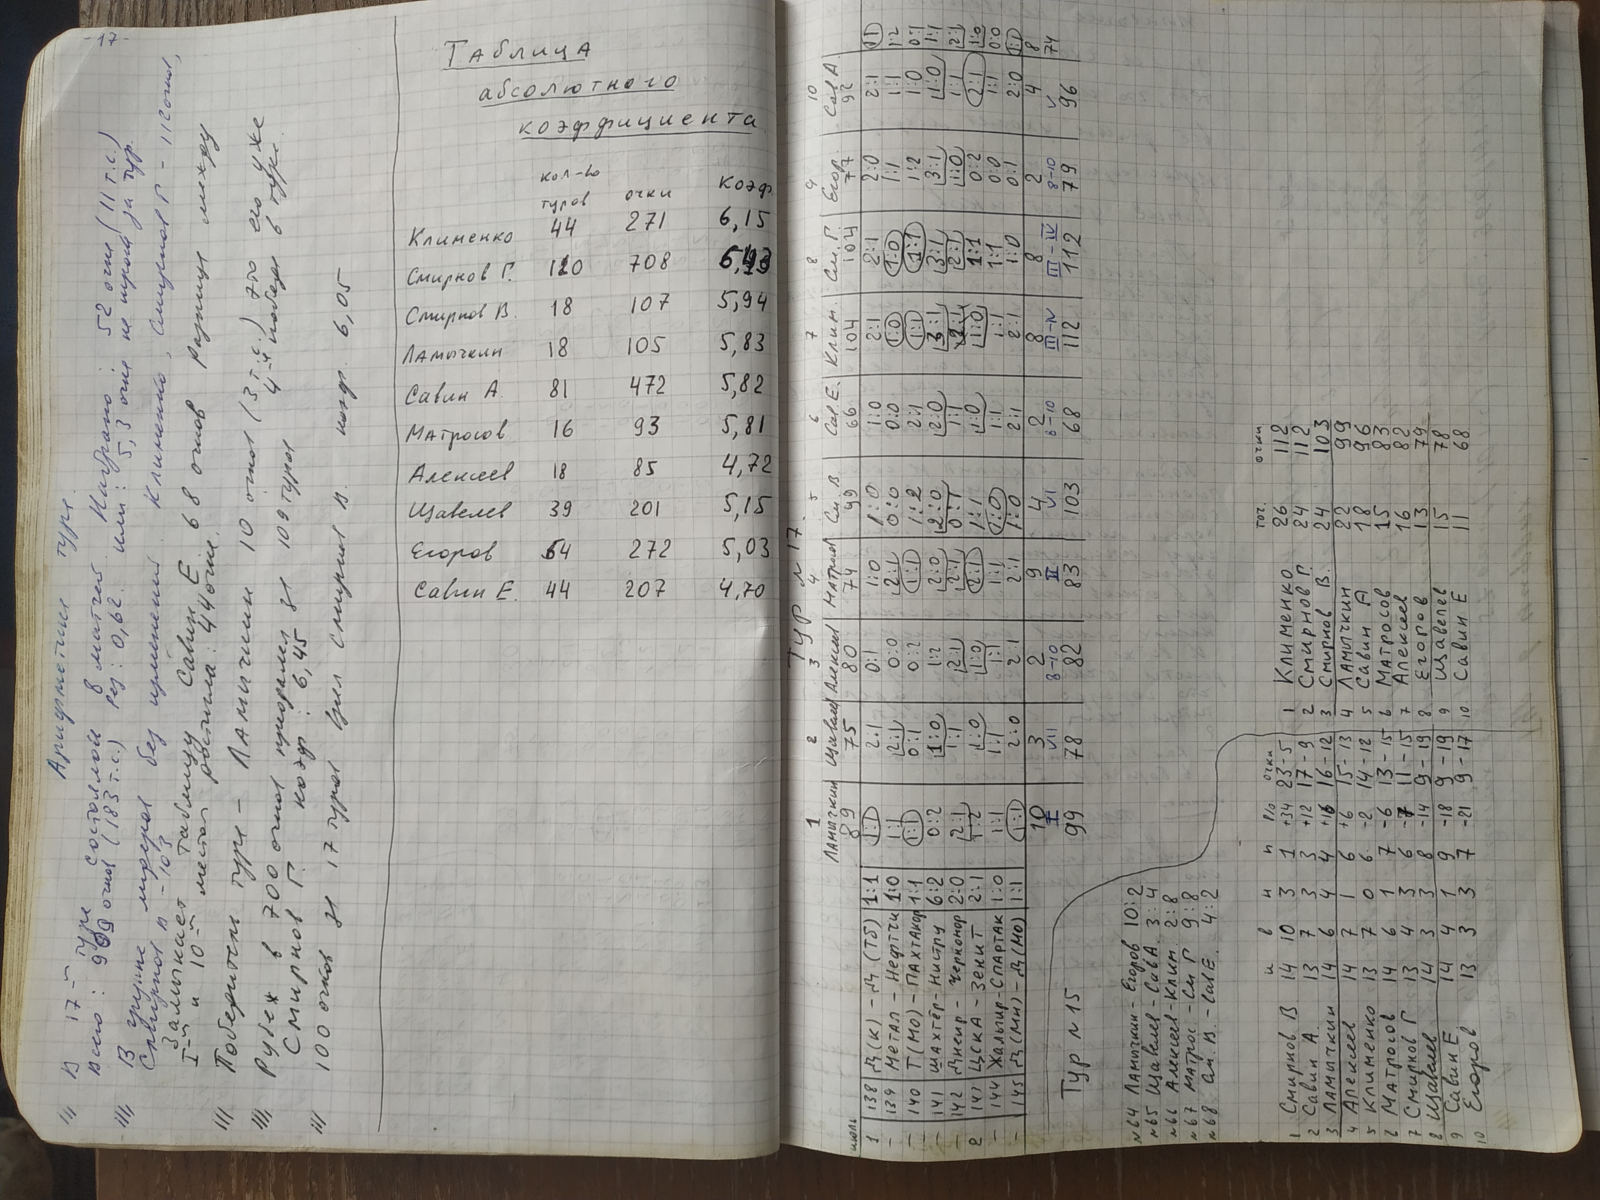 -17-
Арифметика тура.
В 17-м туре состоялось 8 матчей. Набрано: 52 очка (11 т.с.)
Всего: 909 очков (183 т.с.) рез: 0,62. или: 5,3 очка на игрока за тур.
В группе лидеров без изменений. Клименко, Смирнов Г - 112 очков,
Смирнов В - 103
Замыкает таблицу Савин Е. 68 очков Разница между
I-м и 10-м местом составила: 44 очка.
Победитель тура - Ламычкин 10 очков (3 т.с.) это его уже
4-я победа в туре.
Рубеж в 700 очков преодолел за 109 туров
Смирнов Г. коэф: 6,45
100 очков за 17 туров взял Смирнов В. коэф. 6,05
Таблица
абсолютного
коэффициента
кол-во туров очки коэф
Клименко 44 271 6,15
Смирнов Г. 110 708
Смирнов В. 18 107 5,94
Ламычкин 18 105 5,83
Савин А. 81 472 5,82
Матросов 16 93 5,81
Алексеев 18 85 4,72
Щавелев 39 201 5,15
Егоров 54 272 5,03
Савин Е. 44 207 4,70
Тур №17.
1 2 3 4 5 6 7 8 9 10
июль Ламычкин Щавелев Алексеев Матросов См. В Сав Е. Клим. См. Г. Егор. Сав А
89 75 80 74 99 66 104 104 77 92
1 138 Д(К) - Д(Тб) 1:1 1:1 2:1 0:1 1:0 1:0 1:0 2:1 2:1 2:0 2:1 1:1
- 139 Метал - Нефтчи 1:0 1:1 2:1 0:0 2:1 0:0 0:0 1:0 1:0 1:1 1:1 1:2
- 140 Т(МО) - Пахтакор 1:1 1:1 0:1 0:2 1:1 1:2 2:1 1:1 1:1 1:2 1:0 0:1
- 141 Шахтёр - Нистру 6:2 0:2 1:0 1:2 2:0 2:0 2:0 3:1 3:1 3:1 1:0 1:1
- 142 Днепр - Черномор 2:0 2:1 1:1 2:1 2:1 0:1 1:1 2:1 2:1 1:0 1:1 2:1
2 147 ЦСКА - Зенит 2:1 1:2 1:0 1:0 2:1 1:1 1:0 1:0 1:1 0:2 2:1 1:0
- 144 Жальгир - Спартак 1:0 1:1 1:1 1:1 1:1 1:0 1:1 1:1 1:1 0:0 1:1 0:0
- 145 Д(Мн) - Д(МО) 1:1 1:1 2:0 2:1 2:1 1:0 2:1 2:1 1:0 0:1 2:0 1:1
10 3 2 9 4 2 8 8 2 4 8
I VII 8-10 II VI 8-10 III-IV III-IV 8-10 V
99 78 82 83 103 68 112 112 79 96 74
Тур №15
№64 Ламычкин - Егоров 10:2
№65 Щавелев - Сав А 3:4
№66 Алексеев - Клим 2:8
№67 Матрос - См Г 9:8
№68 См. В. - Сав Е. 4:2
и в н п р/о очки
1 Смирнов В 14 10 3 1 +34 23-5
2 Савин А. 13 7 3 3 +12 17-9
3 Ламычкин 14 6 4 4 +16 16-12
4 Алексеев 14 7 1 6 +6 15-13
5 Клименко 13 7 0 6 -2 14-12
6 Матросов 14 6 1 7 -6 13-15
7 Смирнов Г 13 4 3 6 -7 11-15
8 Щавелев 14 3 3 8 -14 9-19
9 Савин Е 14 4 1 9 -18 9-19
10 Егоров 13 3 3 7 -21 9-17
точ. очки
1 Клименко 26 112
2 Смирнов Г. 24 112
3 Смирнов В. 24 103
4 Ламычкин 22 99
5 Савин А 18 96
6 Матросов 15 83
7 Алексеев 16 82
8 Егоров 13 79
9 Щавелев 15 78
10 Савин Е 11 68